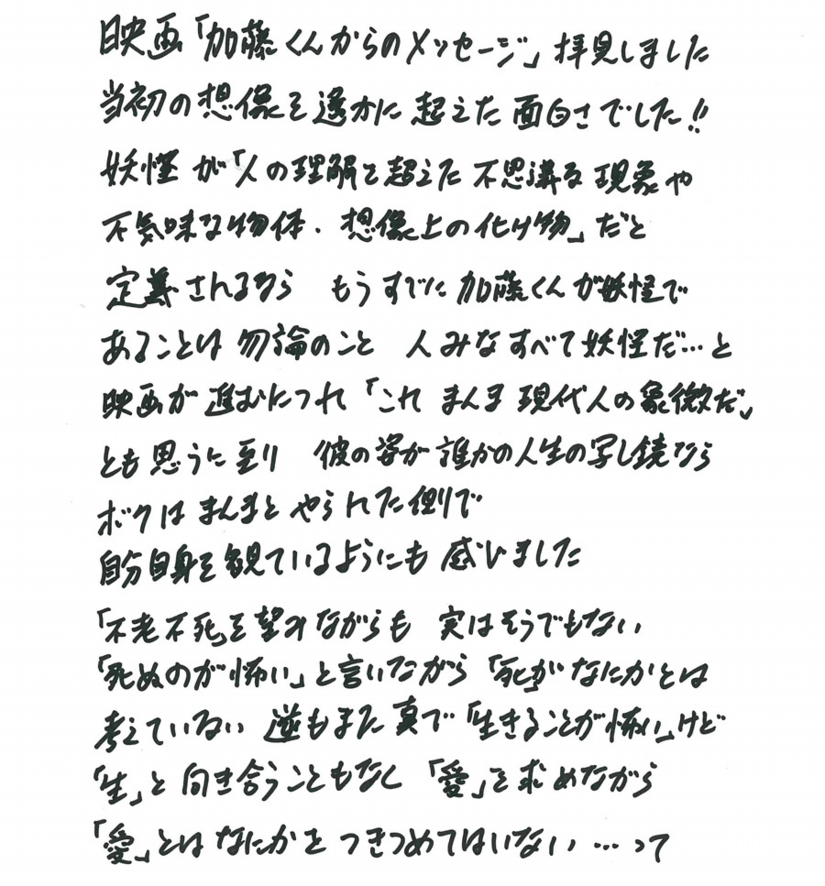 映画「加藤くんからのメッセージ」拝見しました
当初の想像を遥かに超えた面白さでした!!
妖怪が「人の理解を超えた不思議な現象や
不気味な物体・想像上の化け物」だと
定義されるなら もうすでに加藤くんが妖怪で
あることは勿論のこと 人みなすべて妖怪だ…と
映画が進むにつれ「これ まんま現代人の象徴だ」
とも思うに至り 彼の姿が誰かの人生の写し鏡なら
ボクはまんまとやられた側で
自分自身を観ているようにも感じました
「不老不死を望みながらも 実はそうでもない
「死ぬのが怖い」と言いながら「死」がなにかとは
考えていない 逆もまた真で「生きることが怖い」けど
「生」と向き合うこともなく「愛」を求めながら
「愛」とはなにかをつきつめてはいない…って